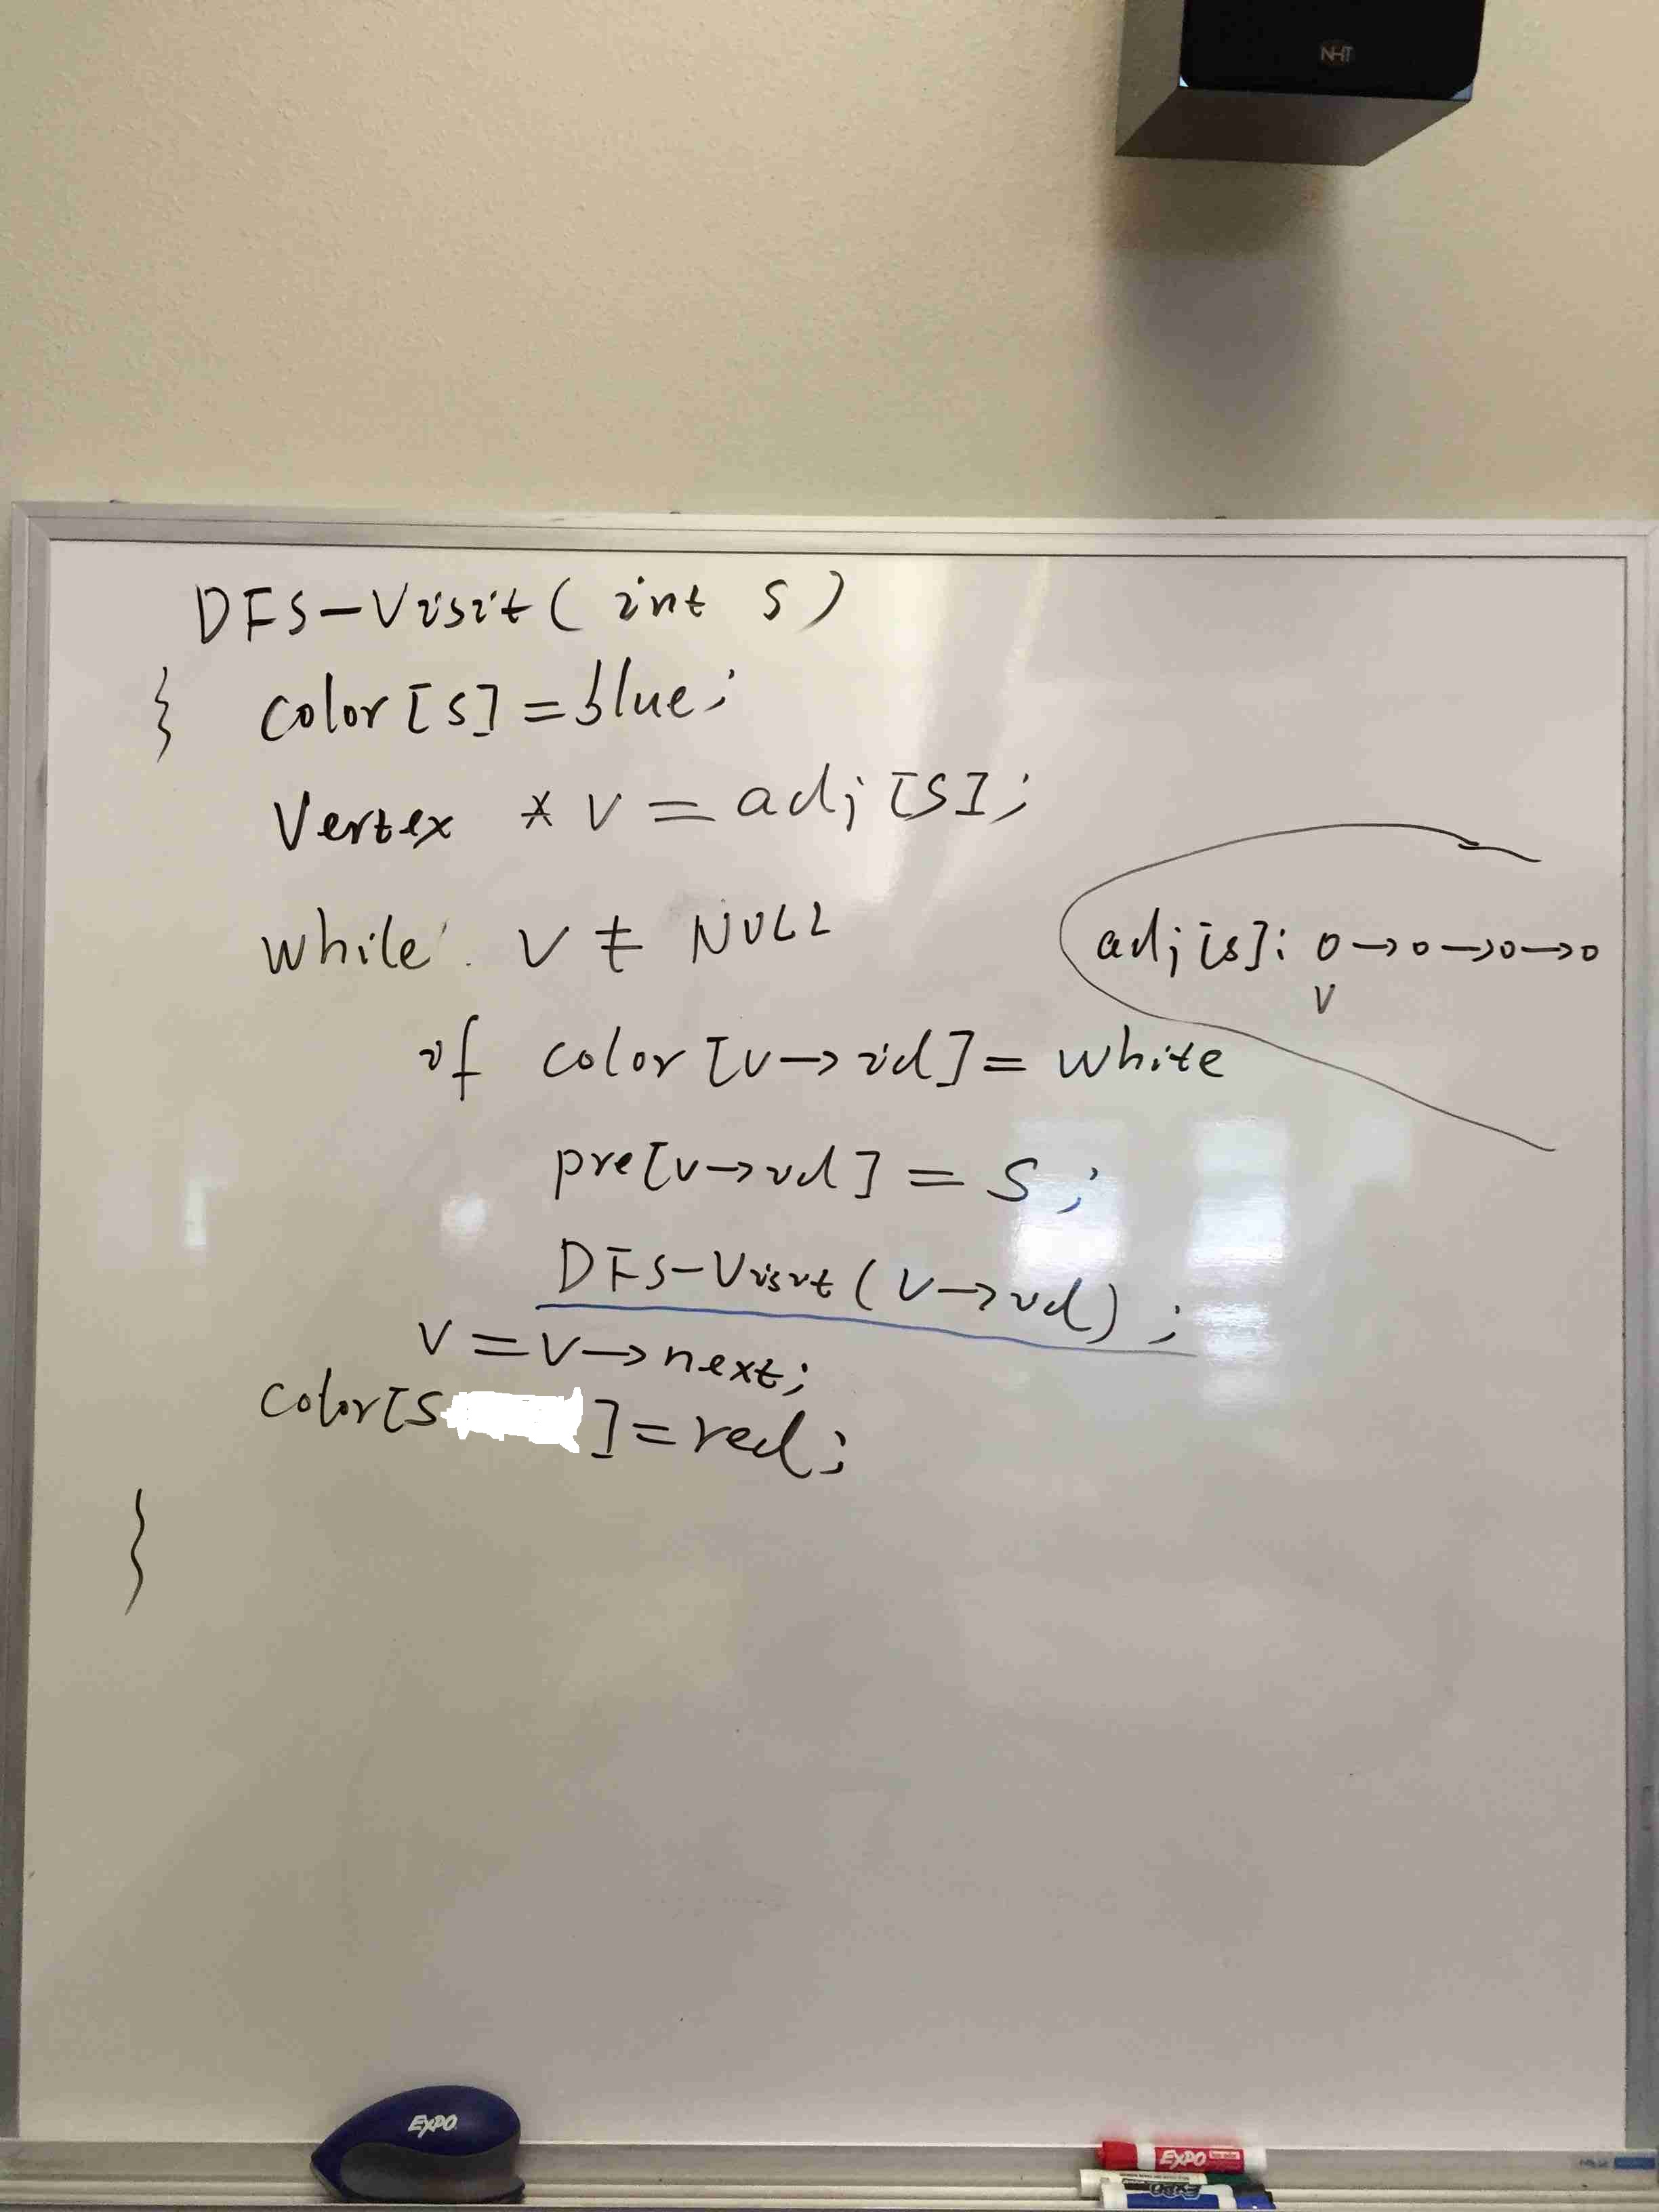 NHT
DFS-Visit( int s )
{ color[s] = blue;
Vertex * v = adj[s];
while v ≠ NULL
adj[s]: o→o→o→o
v
if color[v→id] = white
pre[v→id] = s;
DFS-Visit(v→id);
v = v→next;
color[s ] = red;
}
EXPO
EXPO
EXPO